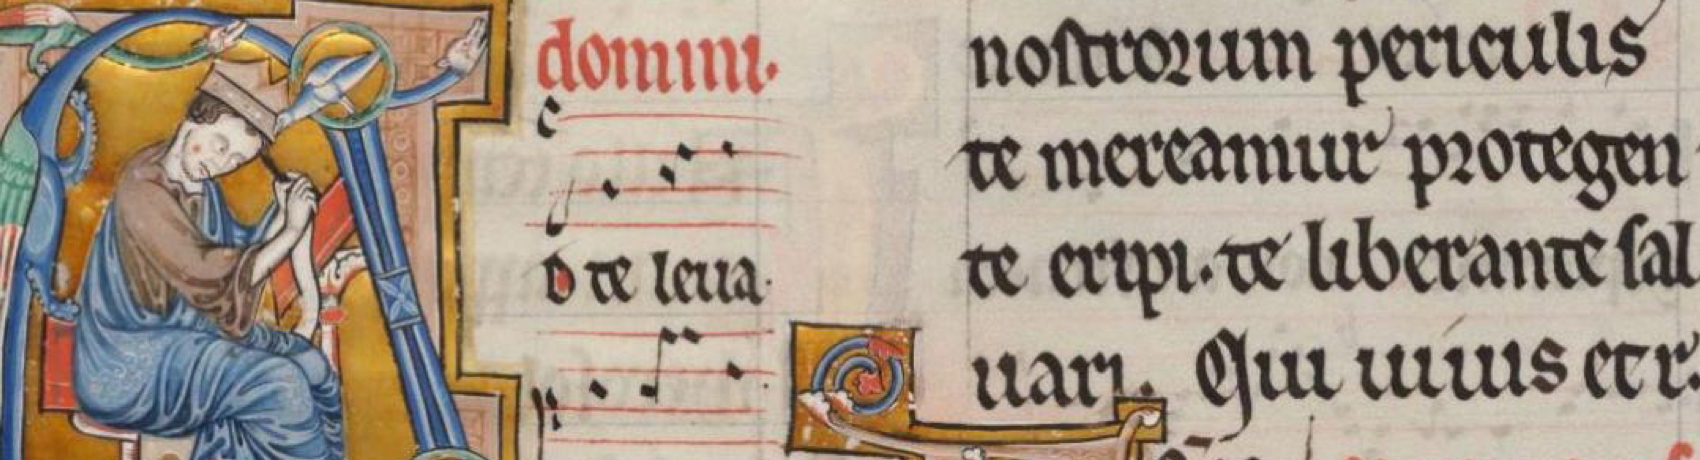 domini.
D te leua
nostrorum periculis
te mereamur protegen
te eripi. te liberante sal
uari. Qui uiuis et r.